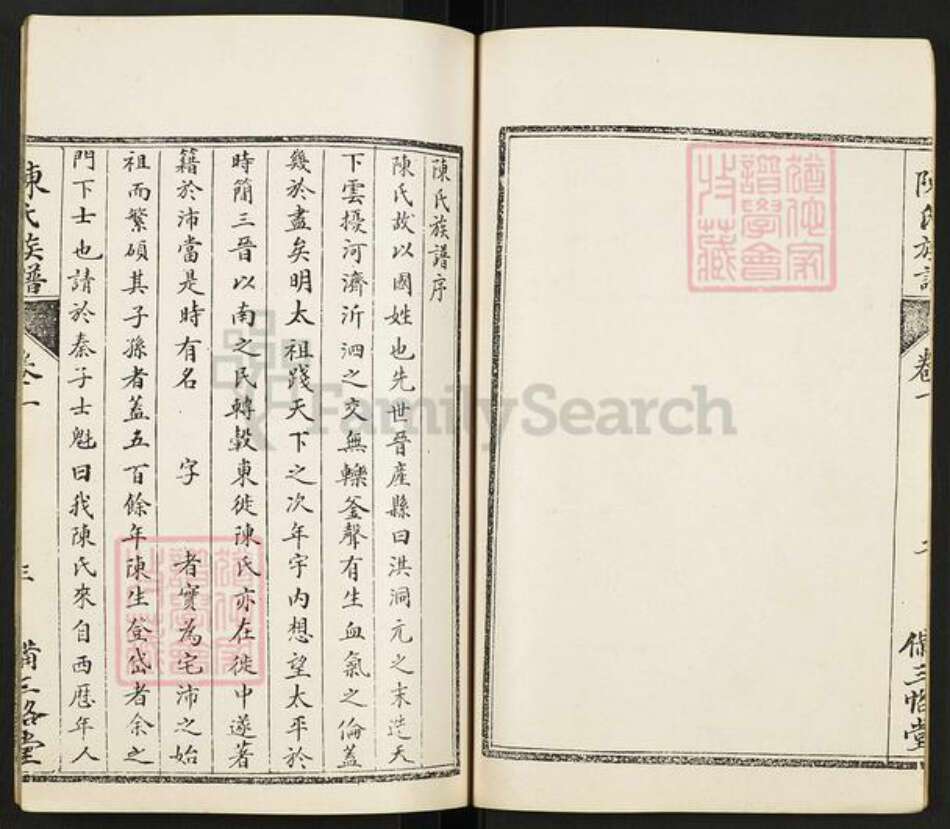 陳氏族譜
卷一
二
陳氏族譜序
陳氏故以國姓也先世晉產縣曰洪洞元之末造天
下雲擾河濟沂泗之交無轢釜聲有生血氣之倫蓋
幾於盡矣明太祖踐天下之次年宇內想望太平於
時簡三晉以南之民轉轂東徙陳氏亦在徙中遂著
籍於沛當是時有名 字 者實為宅沛之始
祖而繁碩其子孫者蓋五百餘年陳生登岱者余之
門下士也請於秦子士魁曰我陳氏來自西歷年人
陳氏族譜
卷一
三
FamilySearch